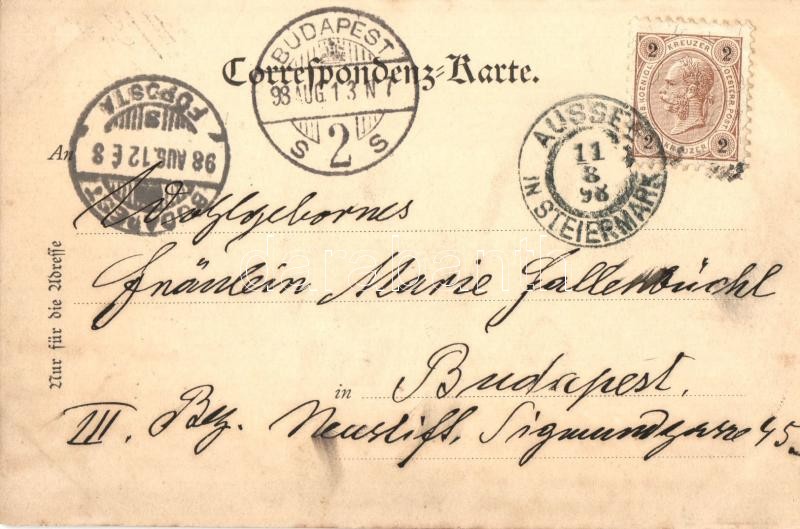 Correspondenz-Karte.
BUDAPEST
98 AUG. 13 N 7
S 2 S
BUDAPEST
98 AUG. 12 É 8
FŐPOSTA
AUSSEE
11
8
98
IN STEIERMARK
2 KREUZER 2
OESTERR. POST
2 KREUZER 2
An
Wohlgebornes
Fräulein Marie Gallenbüchl
in Budapest.
III. Bez. Neustift, Sigmundgasse 45.
Nur für die Adresse
darabanth